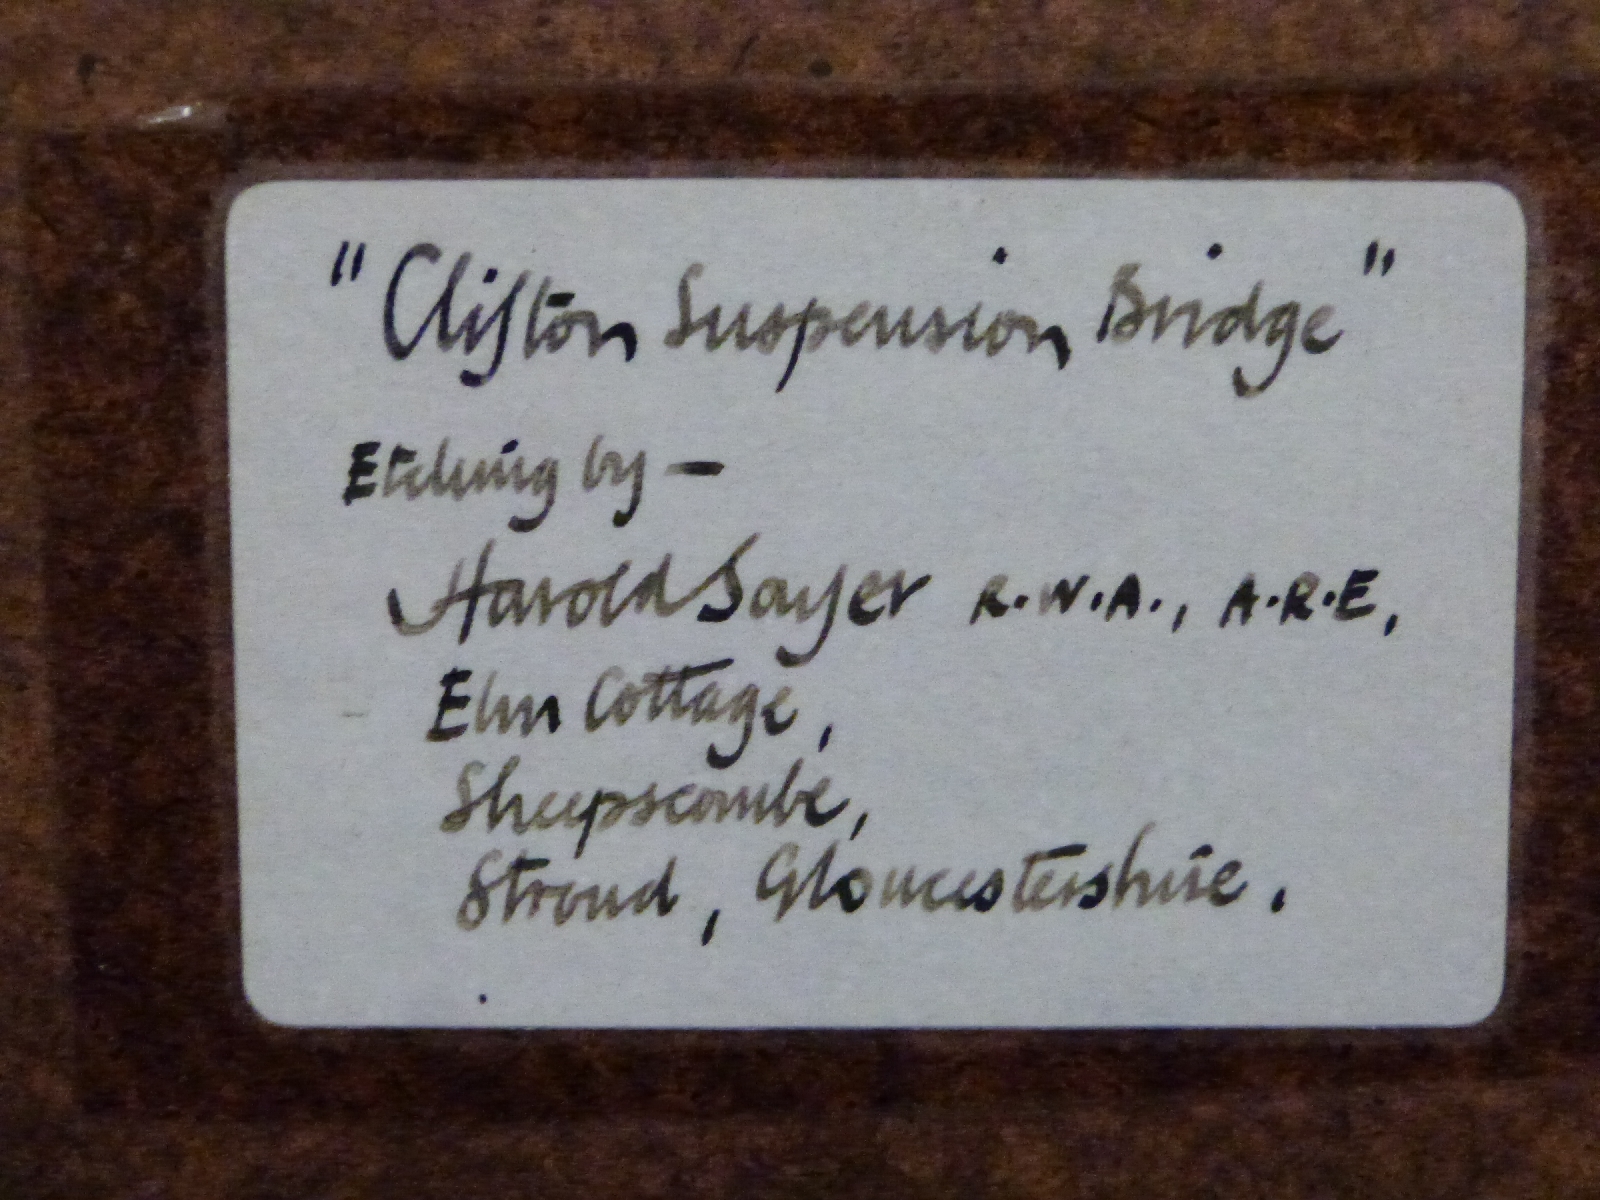 "Clifton Suspension Bridge"
Etching by —
Harold Sayer R.W.A., A.R.E,
Elm Cottage,
Sheepscombe,
Stroud, Gloucestershire.